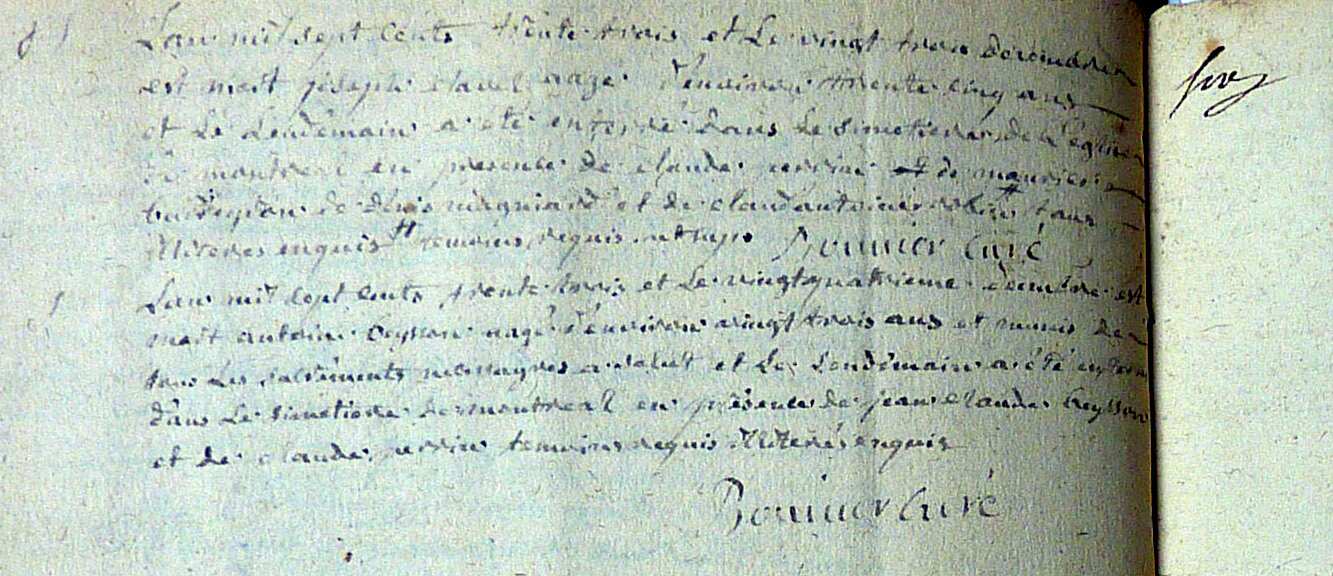 L'an mil sept cents trente trois et Le vingt trois decembre
est mort joseph clavel aagé d'environ trente cinq ans
et Le Lendemain a été enterré dans Le simetiere de L'eglise
de montreal en presence de claude perrin et de maurice
de denis migniard et de claud antoine robin tous
illiteres enquis temoins requis Bonnier curé
L'an mil sept cents trente trois et Le vingtquatrieme decembre est
mort antoine Beysson aagé d'environ vingt trois ans et munis de
tous Les sacrements necessayres a salut et Le Lendemain a été enterré
dans Le simetiere de montreal en présence de jean claude Beysson
et de claude perrin temoins requis illiterés enquis
Bonnier curé